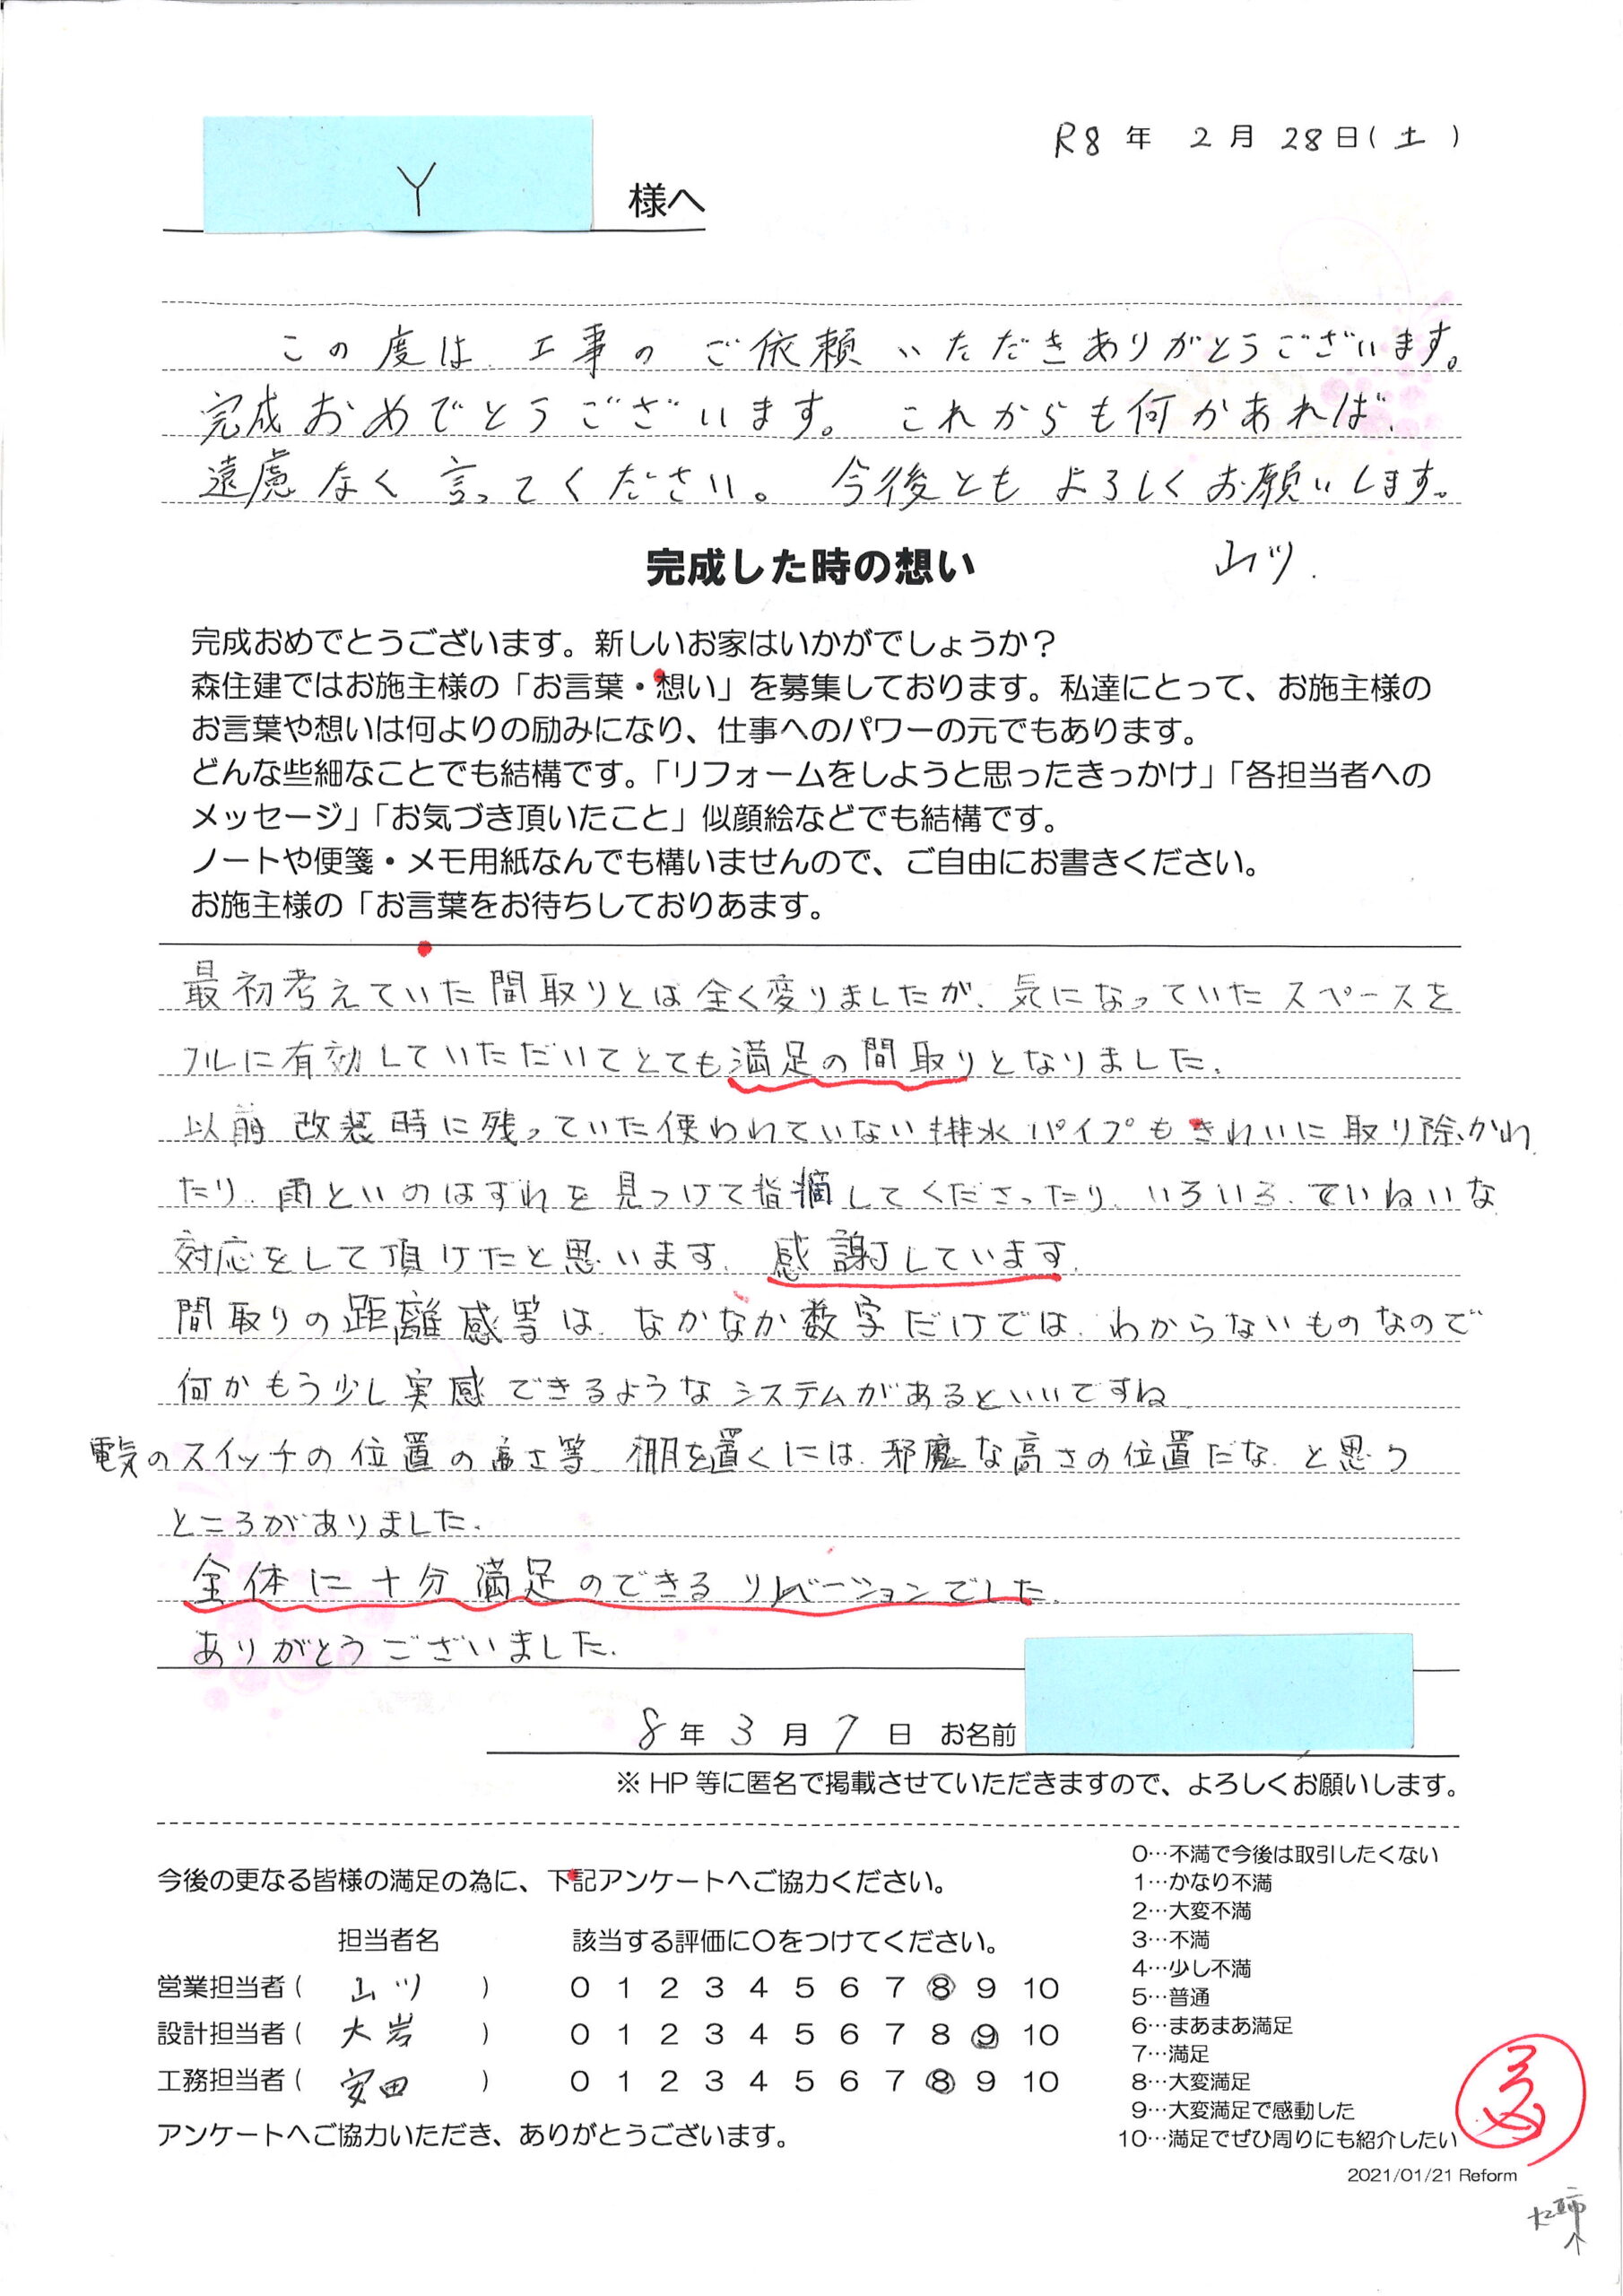 R8年 2月 28日(土)
Y 様へ
この度は、工事の ご依頼 いただきありがとうございます。
完成おめでとうございます。これからも何かあれば、
遠慮なく言ってください。今後ともよろしくお願いします。
完成した時の想い
完成おめでとうございます。新しいお家はいかがでしょうか？
森住建ではお施主様の「お言葉・想い」を募集しております。私達にとって、お施主様の
お言葉や想いは何よりの励みになり、仕事へのパワーの元でもあります。
どんな些細なことでも結構です。「リフォームをしようと思ったきっかけ」「各担当者への
メッセージ」「お気づき頂いたこと」似顔絵などでも結構です。
ノートや便箋・メモ用紙なんでも構いませんので、ご自由にお書きください。
お施主様の「お言葉をお待ちしておりあます。
最初考えていた間取りとは全く変りましたが、気になっていたスペースを
フルに有効していただいてとても満足の間取りとなりました。
以前 改装時に残っていた使われていない排水パイプもきれいに取り除かれ
たり、雨といのはずれを見つけて指摘してくださったり、いろいろ、ていねいな
対応をして頂けたと思います。感謝しています。
間取りの距離感等は、なかなか数字だけでは、わからないものなので
何かもう少し実感できるようなシステムがあるといいですね
電気のスイッチの位置の高さ等 棚を置くには、邪魔な高さの位置だな、と思う
ところがありました。
全体に十分満足のできるリノベーションでした。
ありがとうございました。
8年 3月 7日 お名前
※HP等に匿名で掲載させていただきますので、よろしくお願いします。
今後の更なる皆様の満足の為に、下記アンケートへご協力ください。
担当者名 該当する評価に○をつけてください。
営業担当者( ) 0 1 2 3 4 5 6 7 8 9 10
設計担当者( 大岩 ) 0 1 2 3 4 5 6 7 8 9 10
工務担当者( 安田 ) 0 1 2 3 4 5 6 7 8 9 10
アンケートへご協力いただき、ありがとうございます。
0…不満で今後は取引したくない
1…かなり不満
2…大変不満
3…不満
4…少し不満
5…普通
6…まあまあ満足
7…満足
8…大変満足
9…大変満足で感動した
10…満足でぜひ周りにも紹介したい
2021/01/21 Reform